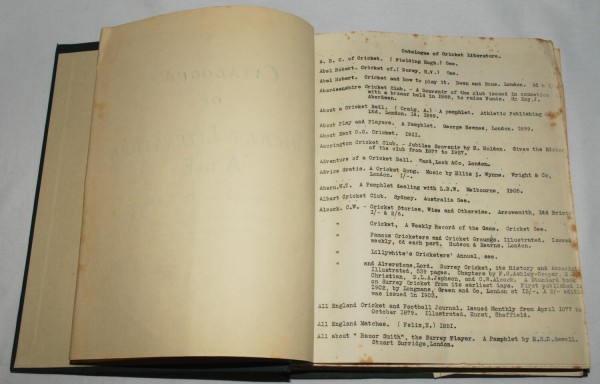 Catalogue of Cricket Literature.
A. B. C. of Cricket. ( Fielding Hugh.) See.
Abel Robert. Cricket of.( Surey, H.V.) See.
Abel Robert. Cricket and how to play it. Dean and Sons. London.
Aberdeenshire Cricket Club. - A Souvenir of the club issued in connection
with a bazaar held in to raise funds.
Aberdeen.
About a Cricket Ball. ( Craig, A.) A pamphlet. Athletic Publishing
Ltd. London.
About Play and Players. A Pamphlet. George Newnes, London. 1899.
About Kent C.C. Cricket. 1911.
Accrington Cricket Club. - Jubilee Souvenir by H. Holden. Gives the
of the club from 1877 to 1927.
Adventure of a Cricket Ball. Ward, Lock &Co, London.
Advice Gratis. A Cricket Song. Music by Ellis j. Wynne. Wright & Co,
London. 1/-.
Ahern, A Pamphlet dealing with L.B.W. Melbourne, 1905.
Albert Cricket Club. Sydney. Australia See.
Alcock. C.W. - Cricket Stories, Wise and Otherwise. Arrowsmith, Ltd
1/- & 2/6.
" Cricket, A Weekly Record of the Game. Cricket See.
" Famous Cricketers and Cricket Grounds. Illustrated. Issued
weekly, 6d each part. Hudson & Kearns. London.
" Lillywhite's Cricketers' Annual, see.
" and Alverstone,Lord. Surrey Cricket, its History and
Illustrated, 539 pages. Chapters by
Christian, D.L.A.Jephson, and C.W.Alcock. A Standard
on Surrey Cricket from its earliest days. First published
1902, by Longmans, Green and Co, London at A 2/-
was issued in 1903.
All England Cricket and Football Journal, Issued Monthly from April 1877 to
October 1879. Illustrated. Hurst, Sheffield.
All England Matches. ( Felix,N.) 1851.
All about " Razor Smith", the Surrey Player. A Pamphlet by
Stuart Surridge,London.